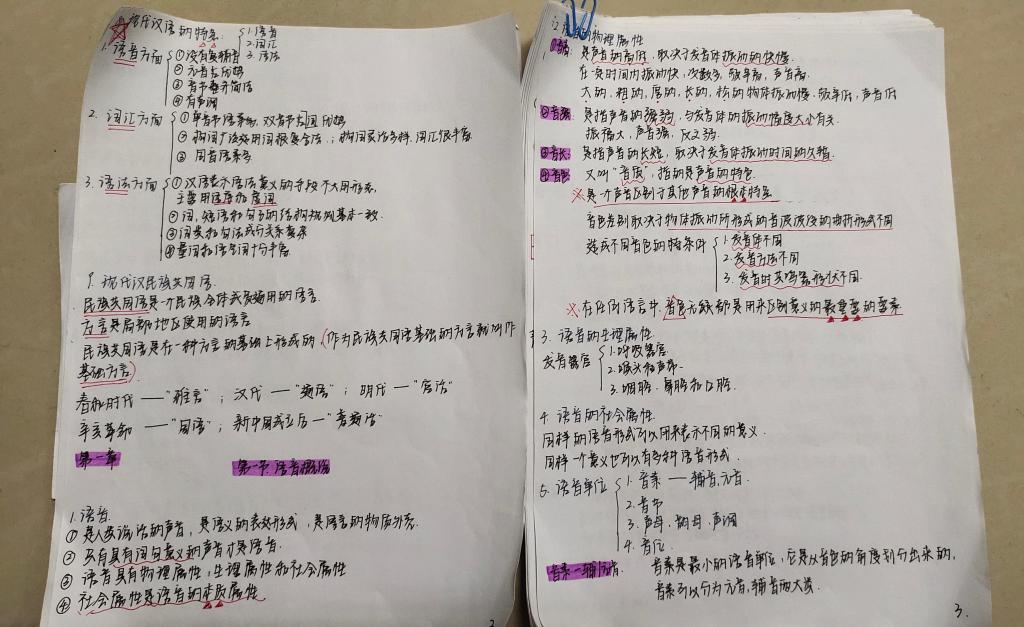 现代汉语的特点
1. 语音
2. 词汇
3. 语法
1. 语音方面
①没有复辅音
②元音占优势
③音节整齐简洁
④有声调
2. 词汇方面
①单音节语素多，双音节词占优势
②构词广泛运用词根复合法；构词灵活多样，词汇很丰富
③同音语素多
3. 语法方面
①汉语表示语法意义的手段不大用形态，
主要用语序和虚词
②词、短语和句子的结构规则基本一致．
③词类和句法成分关系复杂
④量词和语气词十分丰富．
现代汉民族共同语．
民族共同语是一个民族全体成员通用的语言．
方言是局部地区使用的语言
民族共同语是在一种方言的基础上形成的（作为民族共同语基础的方言就叫作
基础方言）．
春秋时代 —"雅言"；汉代 —"通语"；明代 —"官话"
辛亥革命 —"国语"；新中国成立后—"普通话"
第一章
第一节 语音概说
1. 语音．
① 是人类说话的声音，是语义的表达形式，是语言的物质外壳．
② 只有具有词句意义的声音才是语音．
③ 语音具有物理属性，生理属性和社会属性
④ 社会属性是语音的本质属性
2
语音的物理属性
①音高： 是声音的高低，取决于发音体振动的快慢．
在一定时间内振动快，次数多，频率高，声音高．
大的，粗的，厚的，长的，松的物体振动慢，频率低，声音低
②音强： 是指声音的强弱，与发音体的振动幅度大小有关．
振幅大，声音强，反之弱．
③音长： 是指声音的长短，取决于发音体振动时间的久暂．
④音色 又叫"音质"，指的是声音的特色．
※是一个声音区别于其他声音的根本特点
音色差别取决于物体振动所形成的音波波纹的曲折形式不同
造成不同音色的特条件
1. 发音体不同
2. 发音方法不同
3. 发音时共鸣器形状不同．
※在任何语言中，音色无疑都是用来区别意义的最重要的要素
3. 语音的生理属性
发音器官
1. 呼吸器官
2. 喉头和声带．
3. 咽腔、鼻腔和口腔．
4. 语音的社会属性．
同样的语音形式可以用来表示不同的意义．
同样一个意义也可以有多种语音形式．
5. 语音单位
1. 音素 — 辅音、元音．
2. 音节
3. 声母、韵母、声调
4. 音位．
音素—辅元音．音素是最小的语音单位，它是从音色的角度划分出来的，
音素可以分为元音、辅音两大类．
3．